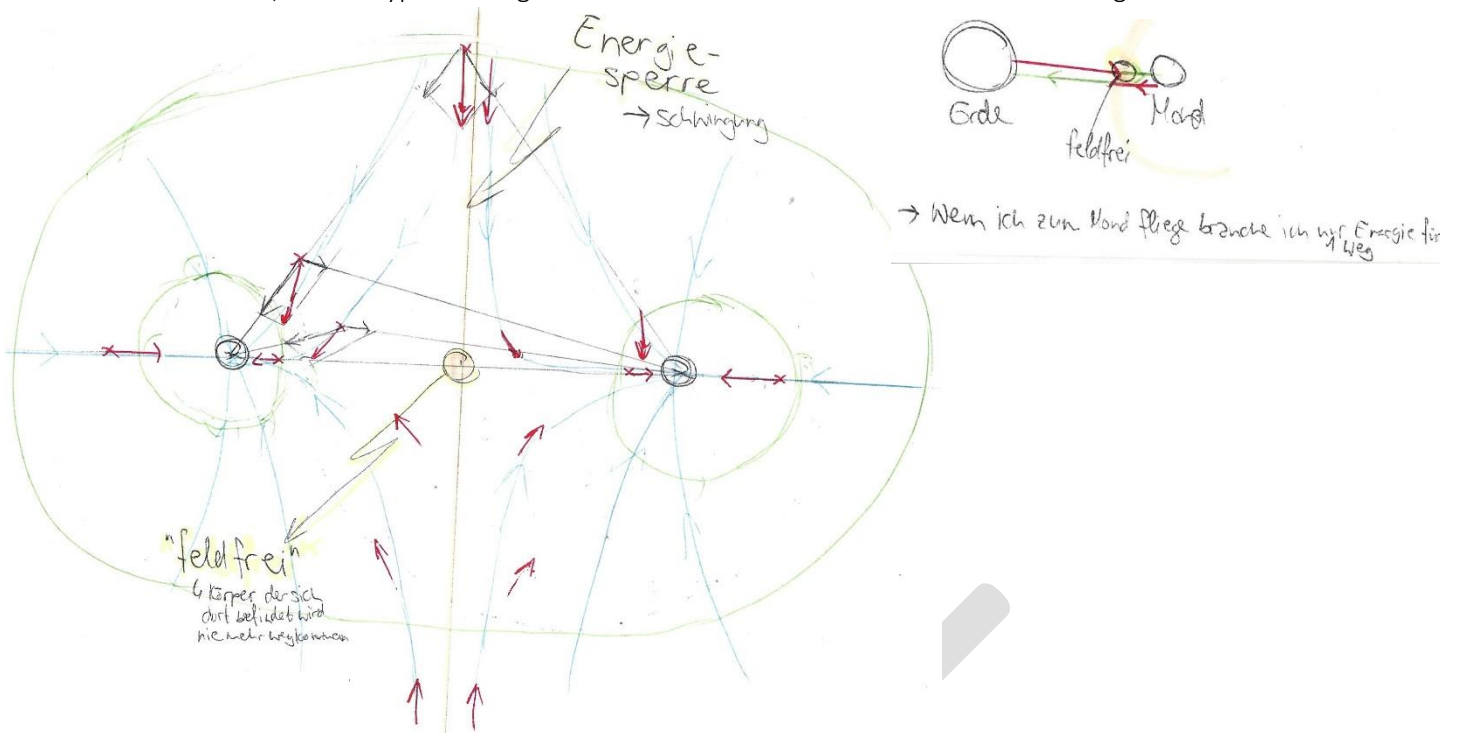 Energie-
sperre
→ Schwingung
Erde
Mond
feldfrei
→ Wenn ich zum Mond fliege brauche ich nur Energie für
1 Weg
"feldfrei"
↳ Körper der sich
dort befindet wird
nie mehr wegkommen